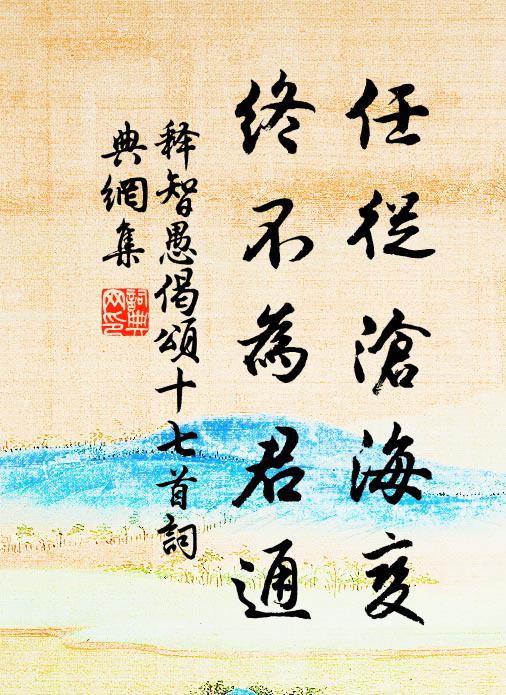 任從滄海变
終不為君通
释智愚偈頌十七首詞
典網集
詞典网印